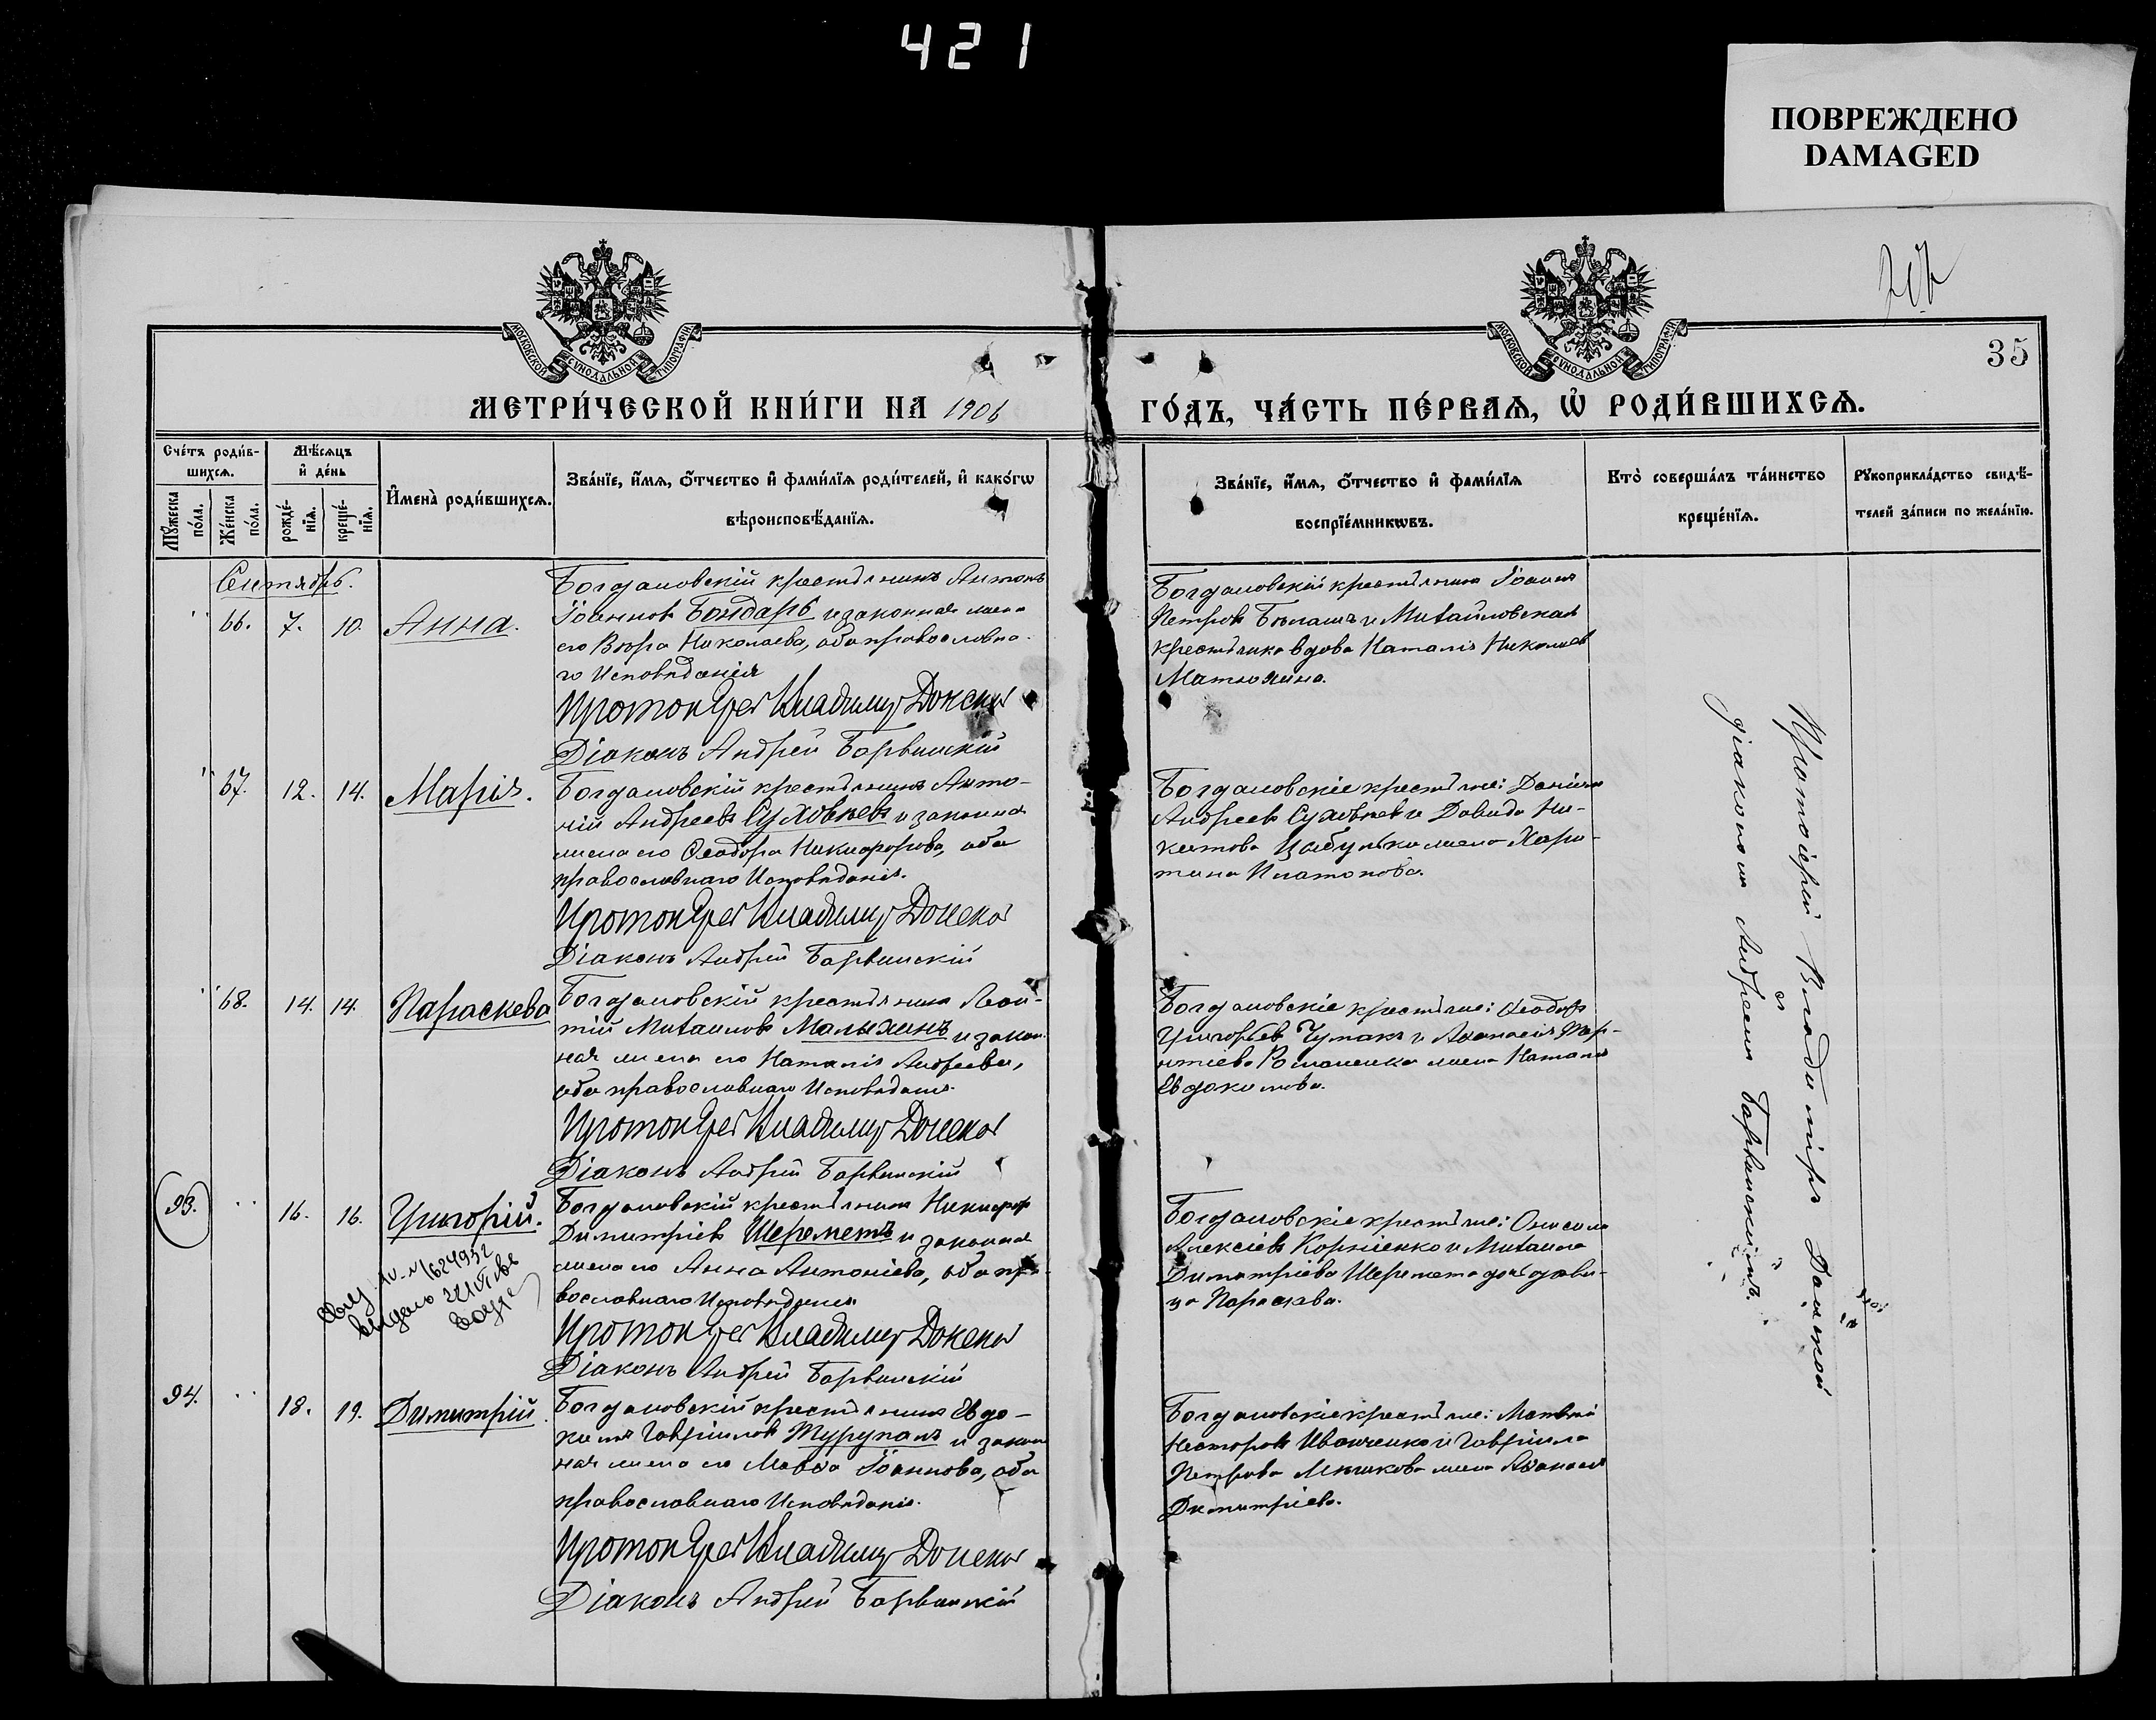 421
ПОВРЕЖДЕНО
DAMAGED
35
МОСКОВСКОЙ СѴНОДАЛЬНОЙ ТИПОГРАФІИ
МОСКОВСКОЙ СѴНОДАЛЬНОЙ ТИПОГРАФІИ
МЕТРИ́ЧЕСКОЙ КНИ́ГИ НА 1906
ГО́ДЪ, ЧА́СТЬ ПЕ́РВАѦ, Ѡ҆ РОДИ́ВШИХСѦ.
Сче́тъ роди́в-
шихсѧ.
Мꙋ́жеска по́ла.
Же́нска по́ла.
Мѣ́сѧцъ
и҆ де́нь
рожде́-
нїѧ.
креще́-
нїѧ.
И҆мена̀ роди́вшихсѧ.
Зва́нїе, и҆́мѧ, ѻ҆́тчество и҆ фами́лїѧ роди́телей, и҆ како́гѡ
вѣроисповѣ́данїѧ.
Зва́нїе, и҆́мѧ, ѻ҆́тчество и҆ фами́лїѧ
воспрїе́мникѡвъ.
Кто̀ соверша́лъ та́инство
креще́нїѧ.
Рꙋкоприкла́дство свидѣ́-
телей за́писи по жела́нїю.
Сентябрь.
66. 7. 10. Анна.
Богдановскій крестьянинъ Антонъ
Іоанновъ Бондарь и законная жена
его Вѣра Николаева, оба православна-
го Исповѣданія
Протоіерей Владиміръ Донской
Діаконъ Андрей Барвинскій
Богдановскій крестьянинъ Іоаннъ
Петровъ и Михайловская
крестьянка вдова Наталія Николаева
Матюхина.
67. 12. 14. Марія.
Богдановскій крестьянинъ Анто-
ній Андреевъ Суховѣевъ и законная
жена его Ѳеодора Никифорова, оба
православнаго Исповѣданія.
Протоіерей Владиміръ Донской
Діаконъ Андрей Барвинскій
Богдановскіе крестьяне: Даніилъ
Андреевъ Суховѣевъ и Давида Ни-
китова Цыбулька жена Хари-
тина Платонова.
68. 14. 14. Параскева
Богдановскій крестьянинъ Леон-
тій Михаиловъ Малыхинъ и закон-
ная жена его Наталія Андреева,
оба православнаго Исповѣданія.
Протоіерей Владиміръ Донской
Діаконъ Андрей Барвинскій
Богдановскіе крестьяне: Ѳеодоръ
Григорьевъ Чумакъ и Аѳанасія Тер-
ентіева Романенка жена Наталія
Евдокимова.
93. 16. 16. Григорій.
Богдановскій крестьянинъ Никифоръ
Димитріевъ Шереметъ и законная
жена его Анна Антоніева, оба пра-
вославнаго Исповѣданія
Протоіерей Владиміръ Донской
Діаконъ Андрей Барвинскій
Богдановскіе крестьяне: Онисимъ
Алексіевъ Корніенко и Михаила
Димитріева Шеремета дочь дѣви-
ца Параскева.
94. 18. 19. Димитрій.
Богдановскій крестьянинъ Евдо-
кимъ Гавріиловъ Турупалъ и закон-
ная жена его Марѳа Іоаннова, оба
православнаго Исповѣданія.
Протоіерей Владиміръ Донской
Діаконъ Андрей Барвинскій
Богдановскіе крестьяне: Матвѣй
Несторовъ Иванченко и Гавріила
Петрова жена Аѳанасія
Димитріева.
Протоіерей Владиміръ Донской
съ
діакономъ Андреемъ Барвинскимъ.